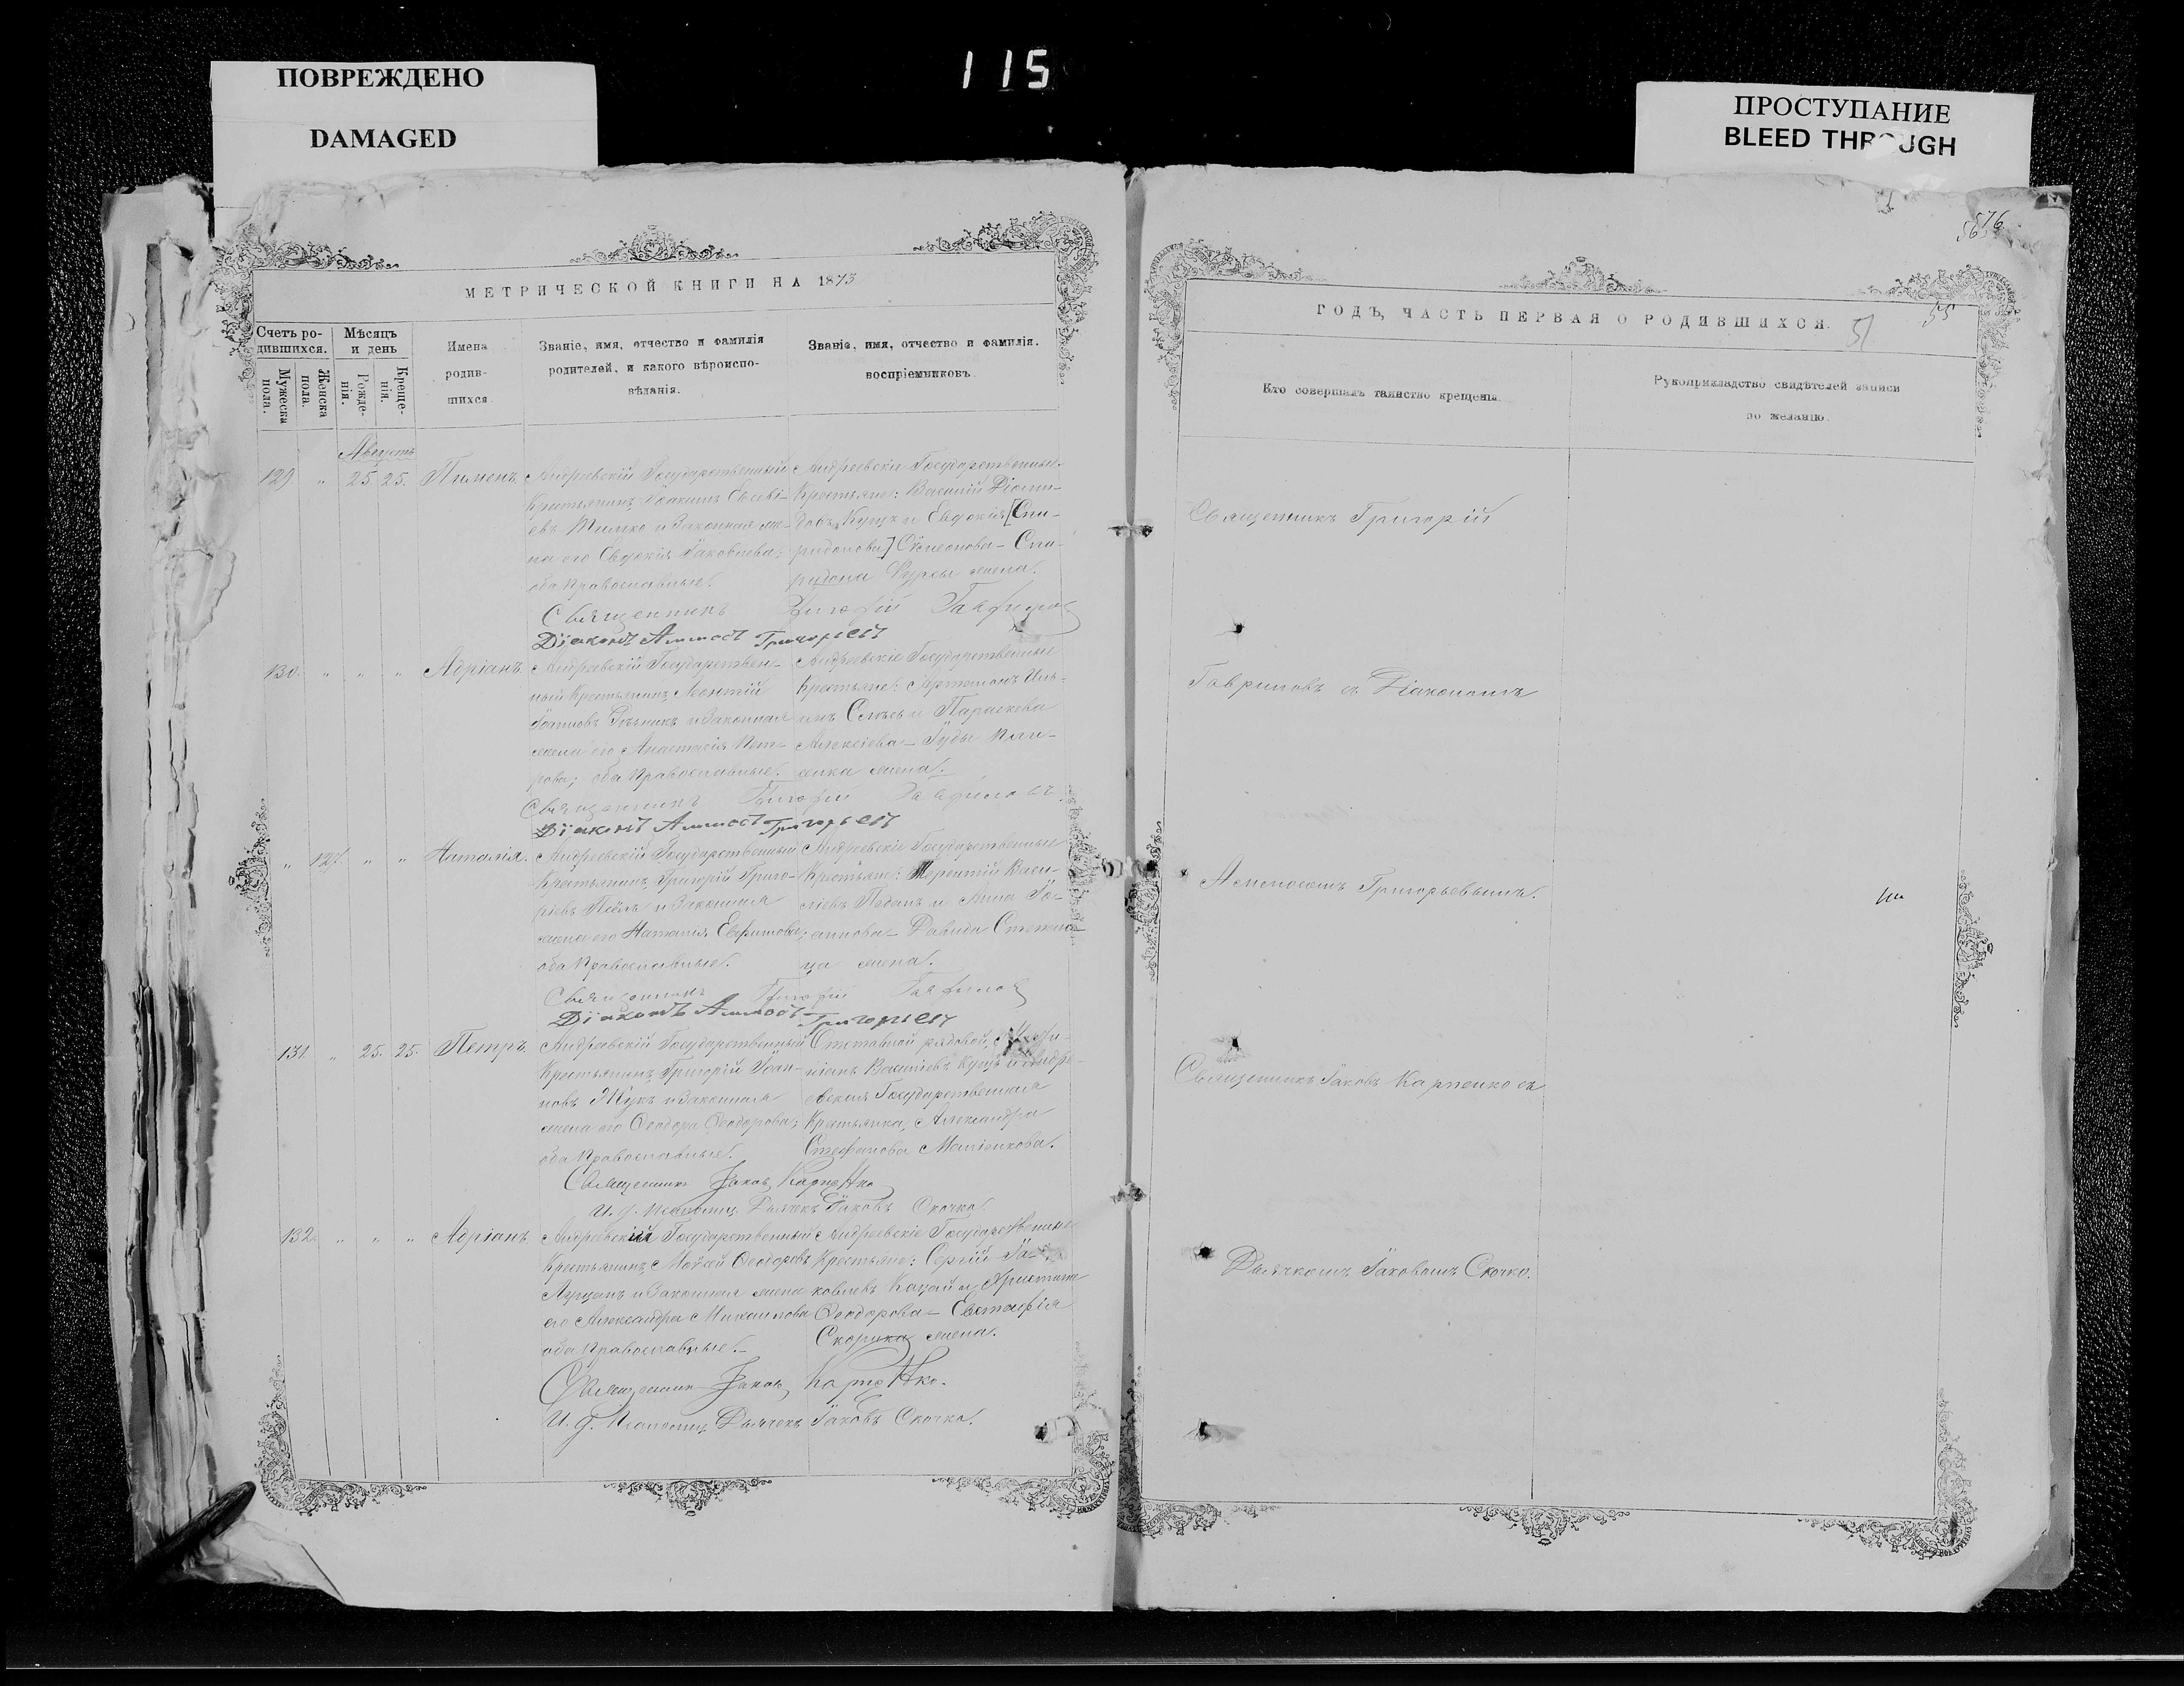 115
ПОВРЕЖДЕНО
DAMAGED
ПРОСТУПАНИЕ
BLEED THROUGH
МЕТРИЧЕСКОЙ КНИГИ НА 1873
Счетъ ро-
дившихся.
Мужеска
пола.
Женска
пола.
Мѣсяцъ
и день
Рожде-
нія.
Креще-
нія.
Имена
родив-
шихся.
Званіе, имя, отчество и фамилія
родителей, и какого вѣроиспо-
вѣданія.
Званіе, имя, отчество и фамилія.
воспріемниковъ.
Августъ
129 " 25. 25. Пименъ.
Андреевскій Государственный
Крестьянинъ Іоакимъ Евсеві-
евъ Тимко и Законная же-
на его Евдокія Іаковлева;
оба Православные.
Андреевскіе Государственные
Крестьяне: Василій Діоми-
довъ Куцъ и Евдокія [Спи-
ридонова] Симеонова – Спи-
ридона Фурсы жена.
Священникъ Григорій Гавриловъ
Діаконъ Аммосъ Григорьевъ
130. " " " Адріанъ.
Андреевскій Государствен-
ный Крестьянинъ Леонтій
Іоанновъ и Законная
жена его Анастасія Пет-
рова; оба Православные.
Андреевскіе Государственные
Крестьяне: Артемонъ Иль-
инъ и Параскева
Алексіева – Гуды
жена.
Священникъ Григорій Гавриловъ.
Діаконъ Аммосъ Григорьевъ
" 127. " " Наталія.
Андреевскій Государственный
Крестьянинъ Григорій Григо-
ріевъ и Законная
жена его Наталія Ефимова;
оба Православные.
Андреевскіе Государственные
Крестьяне: Терентій Васи-
ліевъ и Анна Іо-
аннова – Давида
жена.
Священникъ Григорій Гавриловъ
Діаконъ Аммосъ Григорьевъ
131. " 25. 25. Петръ.
Андреевскій Государственный
Крестьянинъ Григорій Іоан-
новъ Жукъ и Законная
жена его Ѳеодора Ѳеодорова;
оба Православные.
Отставной рядовой,
Василіевъ Куцъ и Андре-
евская Государственная
Крестьянка, Александра
Стефанова
Священникъ Іаковъ Карпенко
И. д. Псаломщ. Дьячекъ Іаковъ Скочко.
132. " " " Адріанъ.
Андреевскій Государственный
Крестьянинъ Моѵсей Ѳеодоровъ
Луцанъ и Законная жена
его Александра Михаилова
оба Православные. –
Андреевскіе Государственные
Крестьяне: Сергій Іа-
ковлевъ Кацай и Христина
Ѳеодорова – Евстафія
Скорика жена.
Священникъ Іаковъ Карпенко.
И. д. Псаломщ. Дьячекъ Іаковъ Скочко.
ГОДЪ, ЧАСТЬ ПЕРВАЯ О РОДИВШИХСЯ.
51
55
56
76
Кто совершалъ таинство крещенія.
Рукоприкладство свидѣтелей записи
по желанію.
Священникъ Григорій
Гавриловъ съ Діакономъ
Аммосомъ Григорьевымъ.
Священникъ Іаковъ Карпенко съ
Дьячкомъ Іаковомъ Скочко.